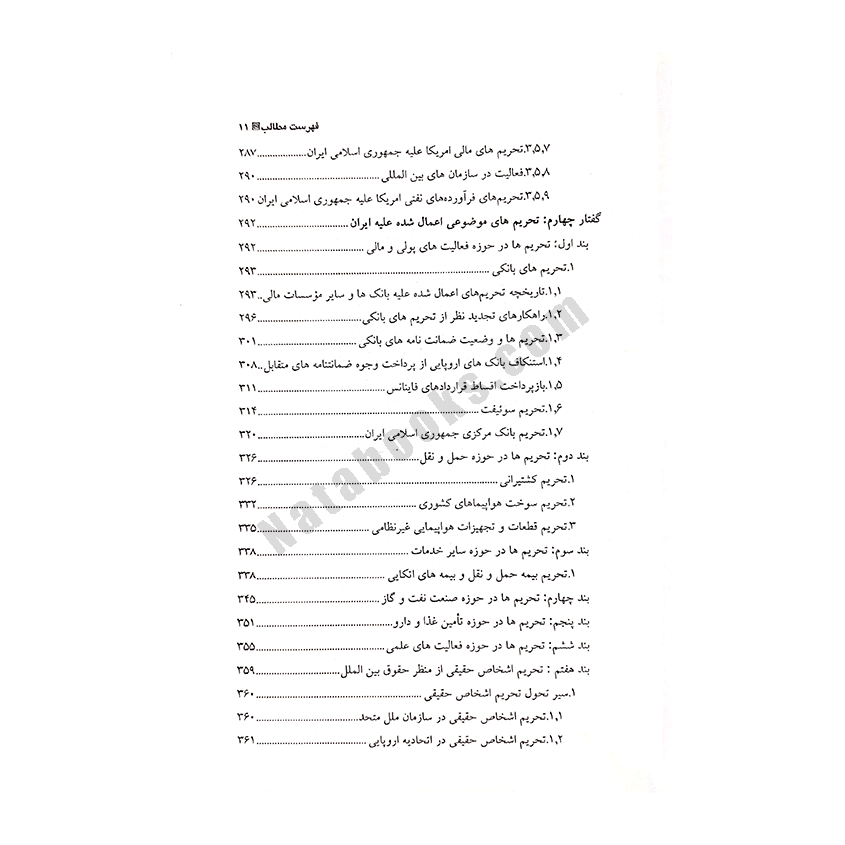 فهرست مطالب ۱۱
۳,۵,۷.تحریم های مالی امریکا علیه جمهوری اسلامی ایران..................۲۸۷
۳,۵,۸.فعالیت در سازمان های بین المللی..................۲۹۰
۳,۵,۹.تحریم‌های فرآورده‌های نفتی امریکا علیه جمهوری اسلامی ایران ۲۹۰
گفتار چهارم: تحریم های موضوعی اعمال شده علیه ایران..................۲۹۲
بند اول؛ تحریم ها در حوزه فعالیت های پولی و مالی..................۲۹۲
۱.تحریم های بانکی..................۲۹۳
۱,۱.تاریخچه تحریم‌های اعمال شده علیه بانک ها و سایر مؤسسات مالی..۲۹۳
۱,۲.راهکارهای تجدید نظر از تحریم های بانکی..................۲۹۶
۱,۳.تحریم ها و وضعیت ضمانت نامه های بانکی..................۳۰۱
۱,۴.استنکاف بانک های اروپایی از پرداخت وجوه ضمانتنامه های متقابل..۳۰۸
۱,۵.بازپرداخت اقساط قراردادهای فاینانس..................۳۱۱
۱,۶.تحریم سوئیفت..................۳۱۴
۱,۷.تحریم بانک مرکزی جمهوری اسلامی ایران..................۳۲۰
بند دوم: تحریم ها در حوزه حمل و نقل..................۳۲۶
۱.تحریم کشتیرانی..................۳۲۶
۲.تحریم سوخت هواپیماهای کشوری..................۳۳۲
۳.تحریم قطعات و تجهیزات هواپیمایی غیرنظامی..................۳۳۵
بند سوم: تحریم ها در حوزه سایر خدمات..................۳۳۸
۱.تحریم بیمه حمل و نقل و بیمه های اتکایی..................۳۳۸
بند چهارم: تحریم ها در حوزه صنعت نفت و گاز..................۳۴۵
بند پنجم: تحریم ها در حوزه تأمین غذا و دارو..................۳۵۱
بند ششم: تحریم ها در حوزه فعالیت های علمی..................۳۵۵
بند هفتم : تحریم اشخاص حقیقی از منظر حقوق بین الملل..................۳۵۹
۱.سیر تحول تحریم اشخاص حقیقی..................۳۶۰
۱,۱.تحریم اشخاص حقیقی در سازمان ملل متحد..................۳۶۰
۱,۲.تحریم اشخاص حقیقی در اتحادیه اروپایی..................۳۶۱
Natabooks.com